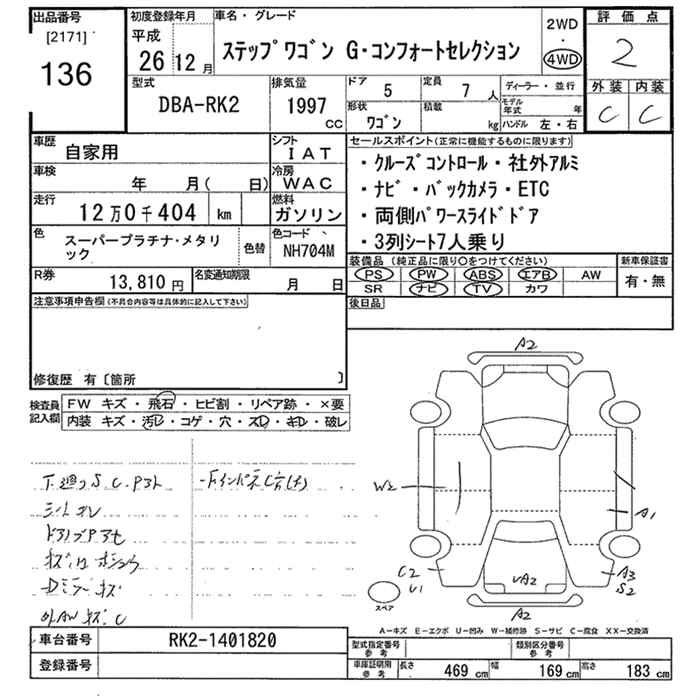 出品番号
[2171]
136
初度登録年月
平成
26 12月
車名・グレード
ステップワゴン G・コンフォートセレクション
2WD
・
4WD
評価点
2
外装 内装
C C
型式
DBA-RK2
排気量
1997 CC
ドア
5
定員
7人
形状
ワゴン
積載
kg
ディーラー・並行
モデル年式 年
ハンドル 左・右
車歴
自家用
シフト
IAT
車検
年 月( 日)
冷房
WAC
走行
12万0千404 km
燃料
ガソリン
色
スーパープラチナ・メタリ
ック
色替
色コード
NH704M
R券
13,810円
名変通知期限
月 日
セールスポイント(正常に機能するものに限ります)
・クルーズコントロール・社外アルミ
・ナビ・バックカメラ・ETC
・両側パワースライドドア
・3列シート7人乗り
装備品 (純正品に限り○をつけてください)
PS PW ABS エアB AW
SR ナビ TV カワ
新車保証書
有・無
後日品
注意事項申告欄(不具合内容等は具体的に記入して下さい)
修復歴 有〔箇所 〕
検査員
記入欄
FW キズ・飛石・ヒビ割・リペア跡・×要
内装 キズ・汚レ・コゲ・穴・スレ・キレ・破レ
下廻りS.C.Pスト
シートスレ
A2
W2
A1
C2
U1
UA2
A3
S2
A2
スペア
A-キズ E-エクボ U-凹み W-補修跡 S-サビ C-腐食 XX-交換済
車台番号
RK2-1401820
登録番号
型式指定番号
参考
類別区分番号
参考
車庫証明用
参考
長さ 469 cm
幅 169 cm
高さ 183 cm